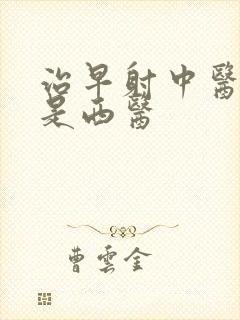 治早射中醫
是西醫
曹雲金